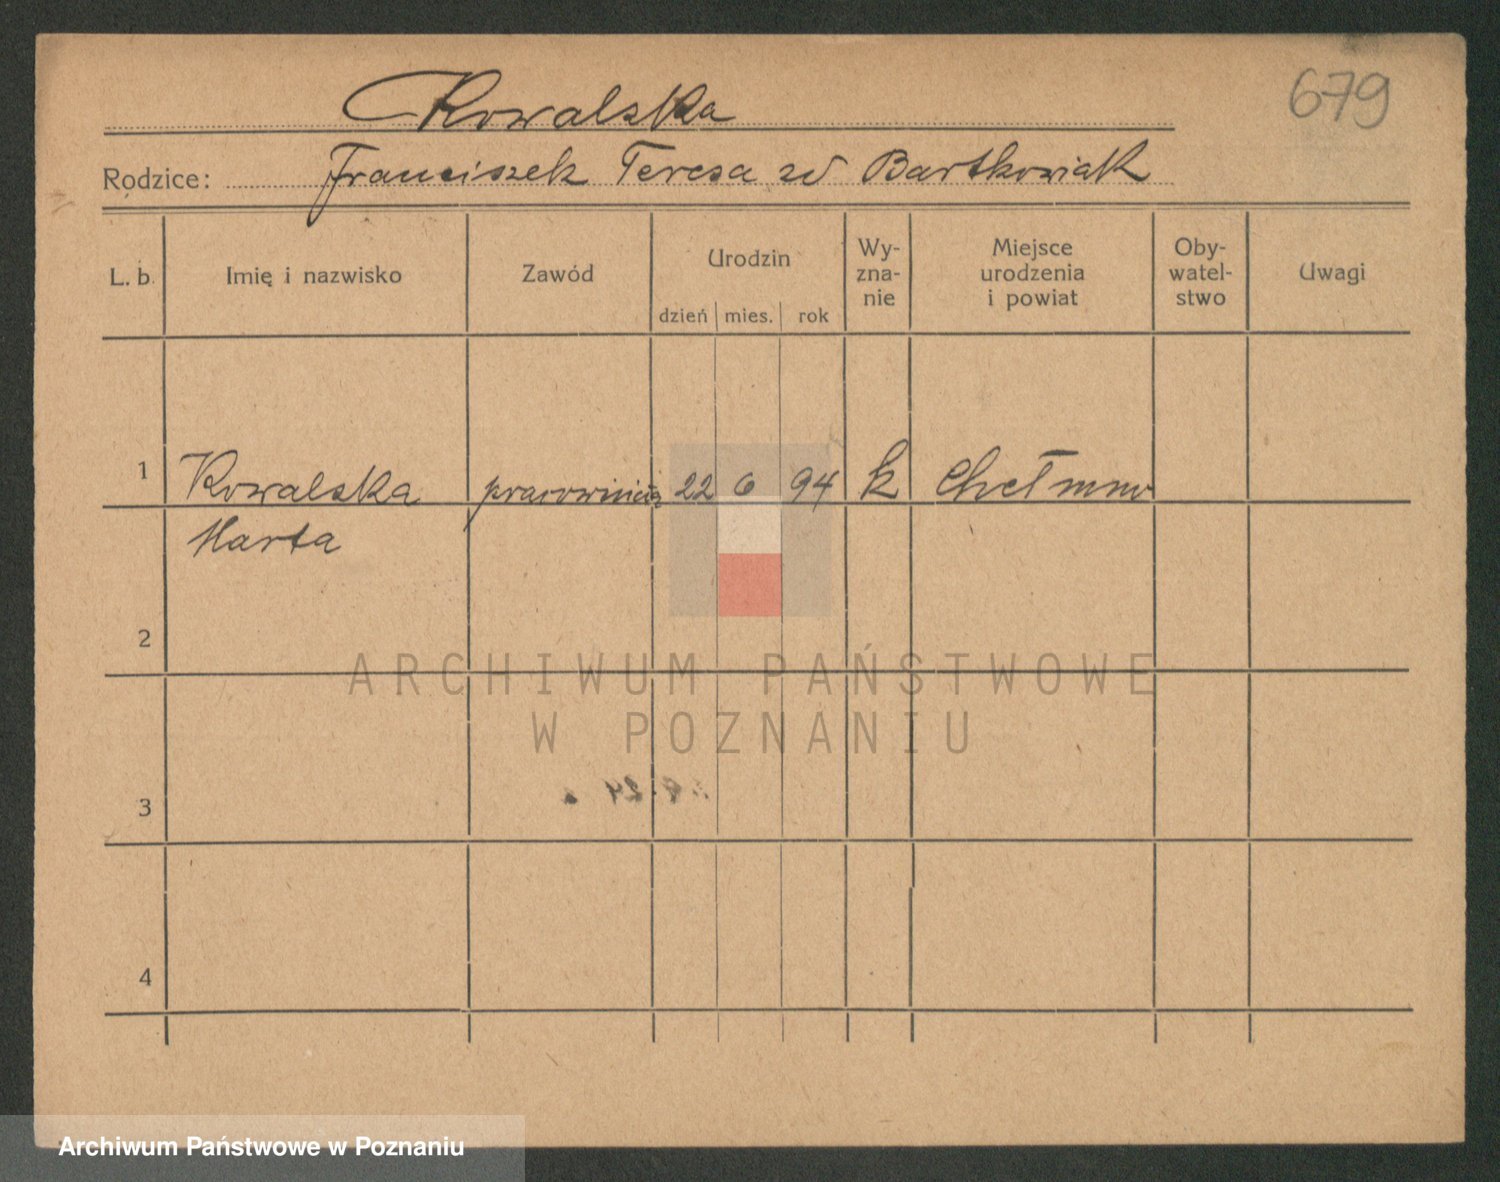 Kowalska
679
Rodzice: Franciszek Teresa zd Bartkowiak
L. b. Imię i nazwisko Zawód Urodzin dzień mies. rok Wy-zna-nie Miejsce urodzenia i powiat Oby-watel-stwo Uwagi
1 Kowalska pracownica 22 6 94 k Chełmno
Marta
2
ARCHIWUM PAŃSTWOWE
W POZNANIU
3
4
Archiwum Państwowe w Poznaniu